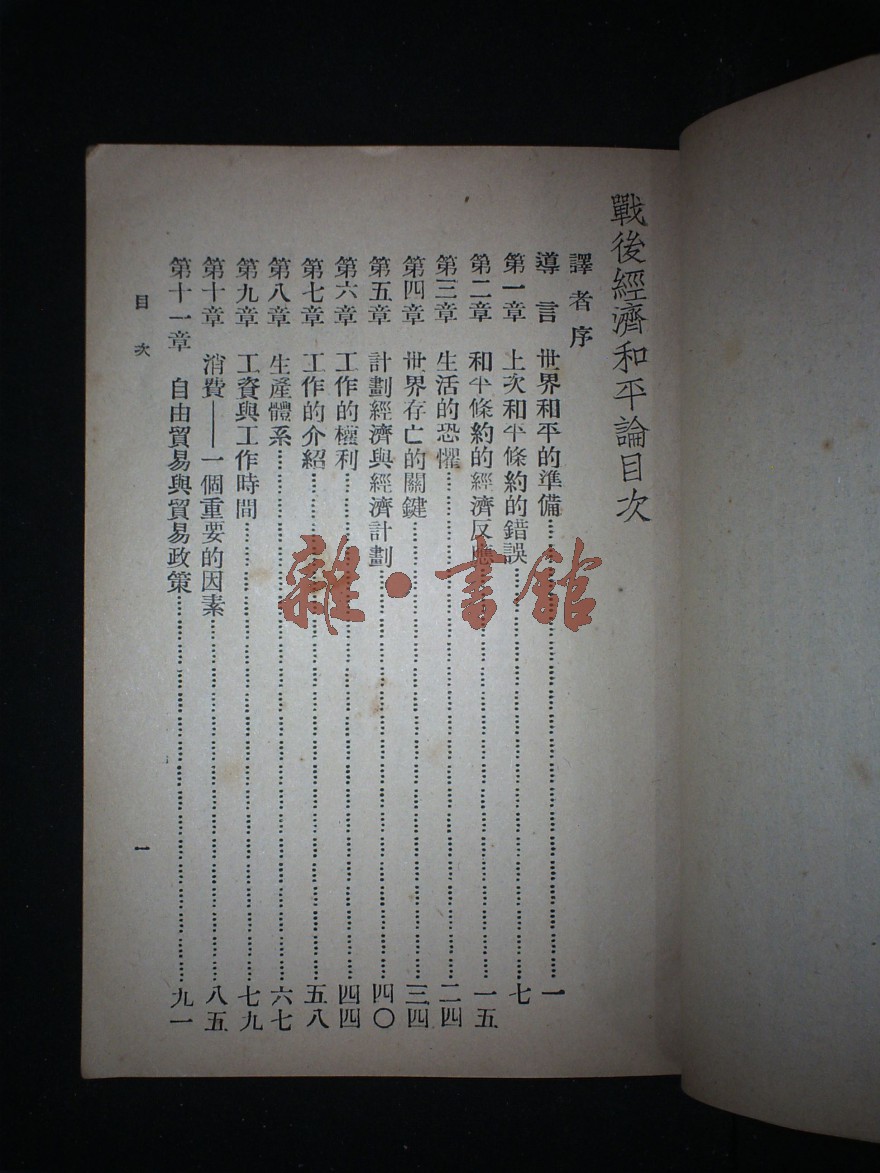 戰後經濟和平論目次
譯者序
導言 世界和平的準備……一
第一章 上次和平條約的錯誤……七
第二章 和平條約的經濟反應……一五
第三章 生活的恐懼……二四
第四章 世界存亡的關鍵……三四
第五章 計劃經濟與經濟計劃……四〇
第六章 工作的權利……四四
第七章 工作的介紹……五八
第八章 生產體系……六七
第九章 工資與工作時間……七九
第十章 消費——一個重要的因素……八五
第十一章 自由貿易與貿易政策……九一
目次
一
雜·書館